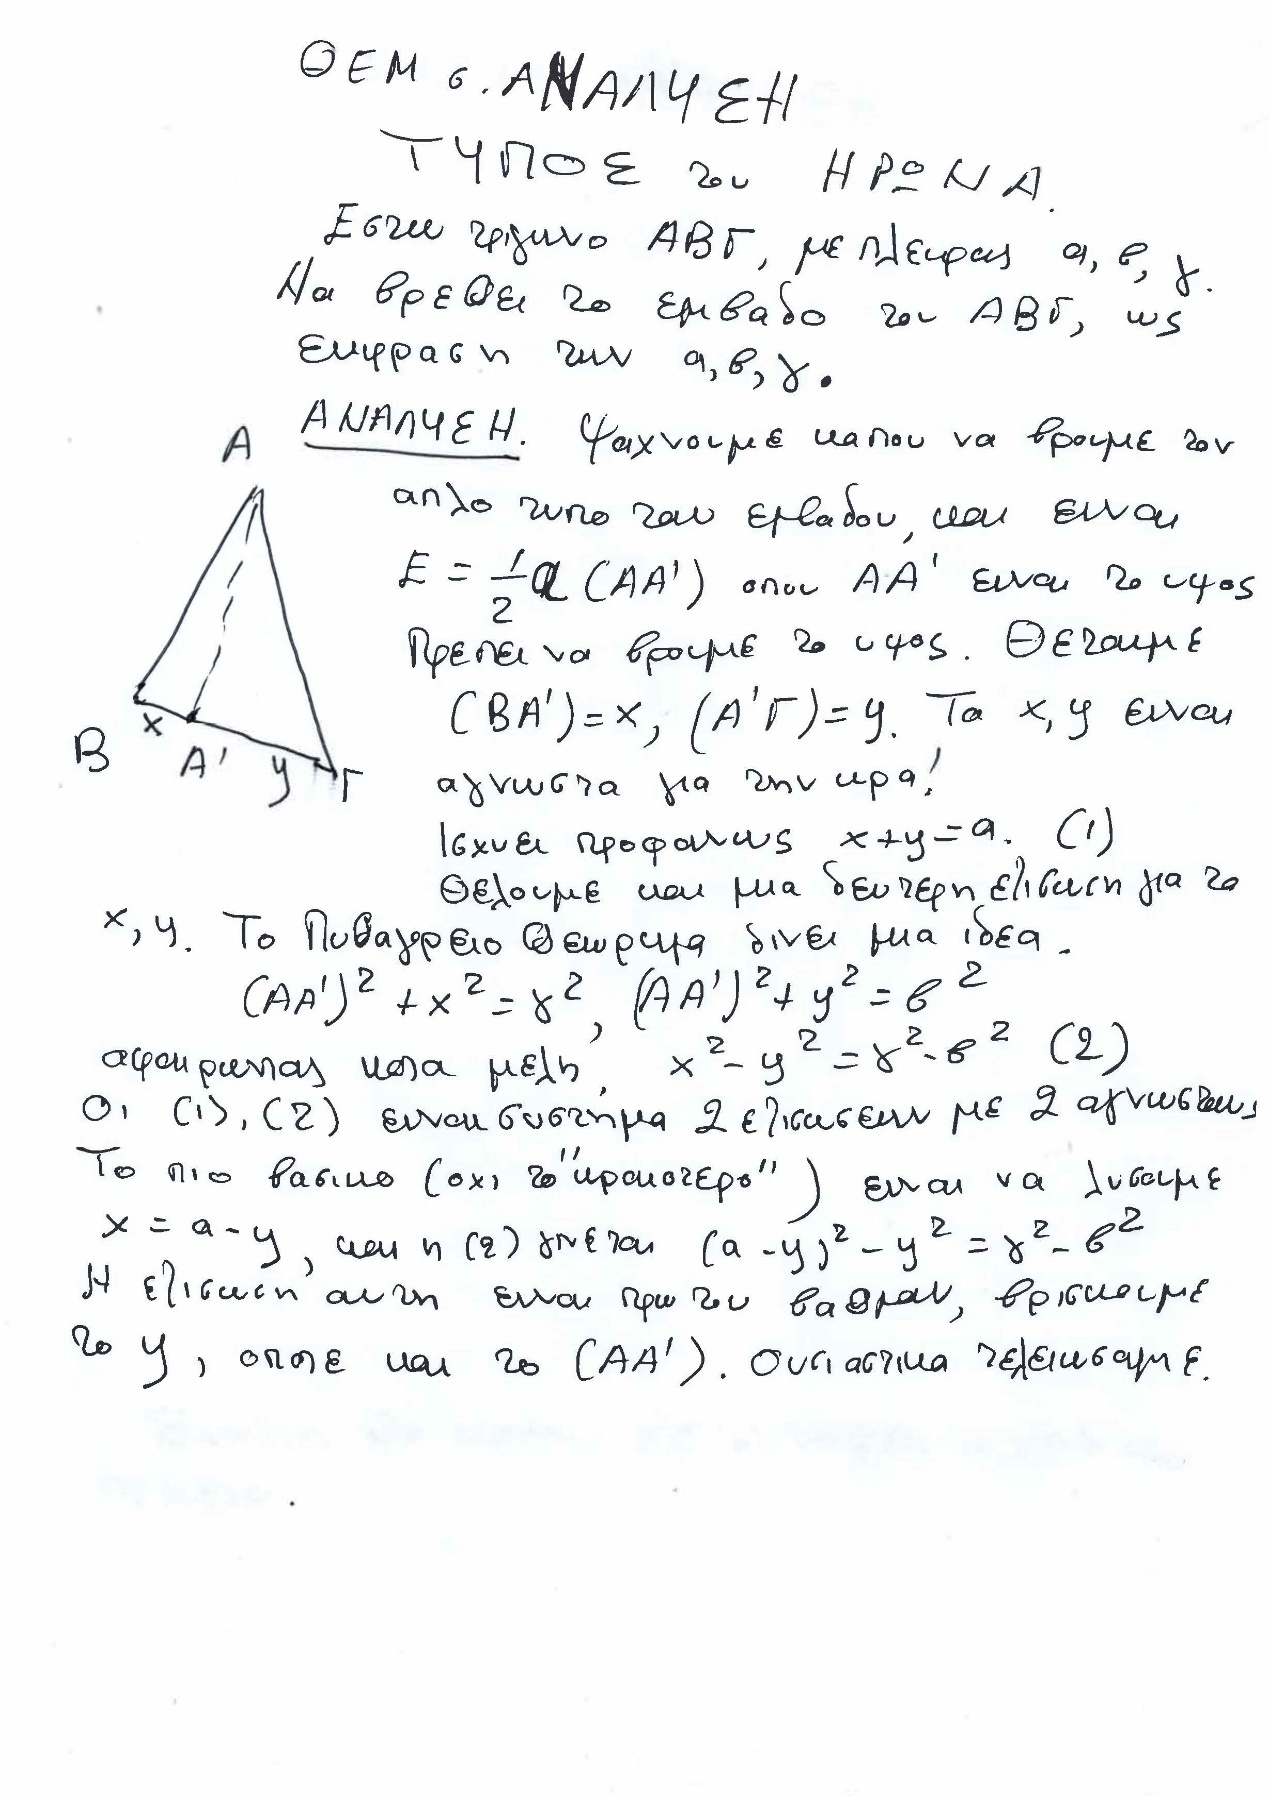 ΘΕΜ 6. ΑΝΑΛΥΣΗ
ΤΥΠΟΣ του ΗΡΩΝΑ.
Εστω τριγωνο ΑΒΓ, με πλευρες α, β, γ.
Να βρεθει το εμβαδο του ΑΒΓ, ως
εκφραση των α, β, γ.
ΑΝΑΛΥΣΗ. Ψαχνουμε καπου να βρουμε τον
απλο τυπο του εμβαδου, και ειναι
Ε = 1/2 α (ΑΑ') οπου ΑΑ' ειναι το υψος
Πρεπει να βρουμε το υψος. Θετουμε
(ΒΑ')=x, (Α'Γ)=y. Τα x, y ειναι
αγνωστα για την ωρα!
Ισχυει προφανως x+y=α. (1)
Θελουμε και μια δευτερη εξισωση για το
x, y. Το Πυθαγορειο Θεωρημα δινει μια ιδεα.
(ΑΑ')² + x² = γ², (ΑΑ')² + y² = β²
αφαιρωντας κατα μελη, x² - y² = γ² - β² (2)
Οι (1), (2) ειναι συστημα 2 εξισωσεων με 2 αγνωστους
Το πιο βασικο (οχι το "ωραιοτερο") ειναι να λυσουμε
x = α - y, και η (2) γινεται (α - y)² - y² = γ² - β²
Η εξισωση αυτη ειναι πρωτου βαθμου, βρισκουμε
το y, οποτε και το (ΑΑ'). Ουσιαστικα τελειωσαμε.
Α
Β
x
Α'
y
Γ